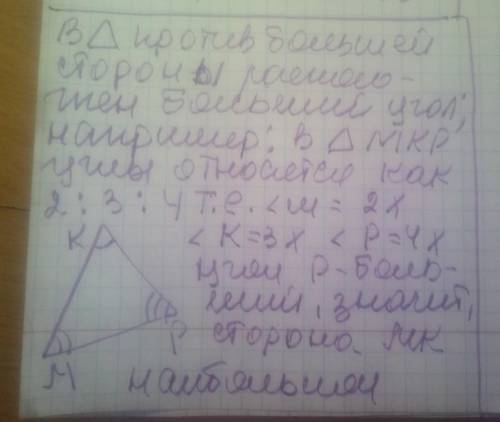 В △ против большей
стороны располо-
жен больший угол;
например: В △ МКР
углы относятся как
2 : 3 : 4 т.е. < М = 2х
К
< К = 3х < Р = 4х
угол Р - боль-
ший, значит,
сторона МК
Р
М
наибольшая